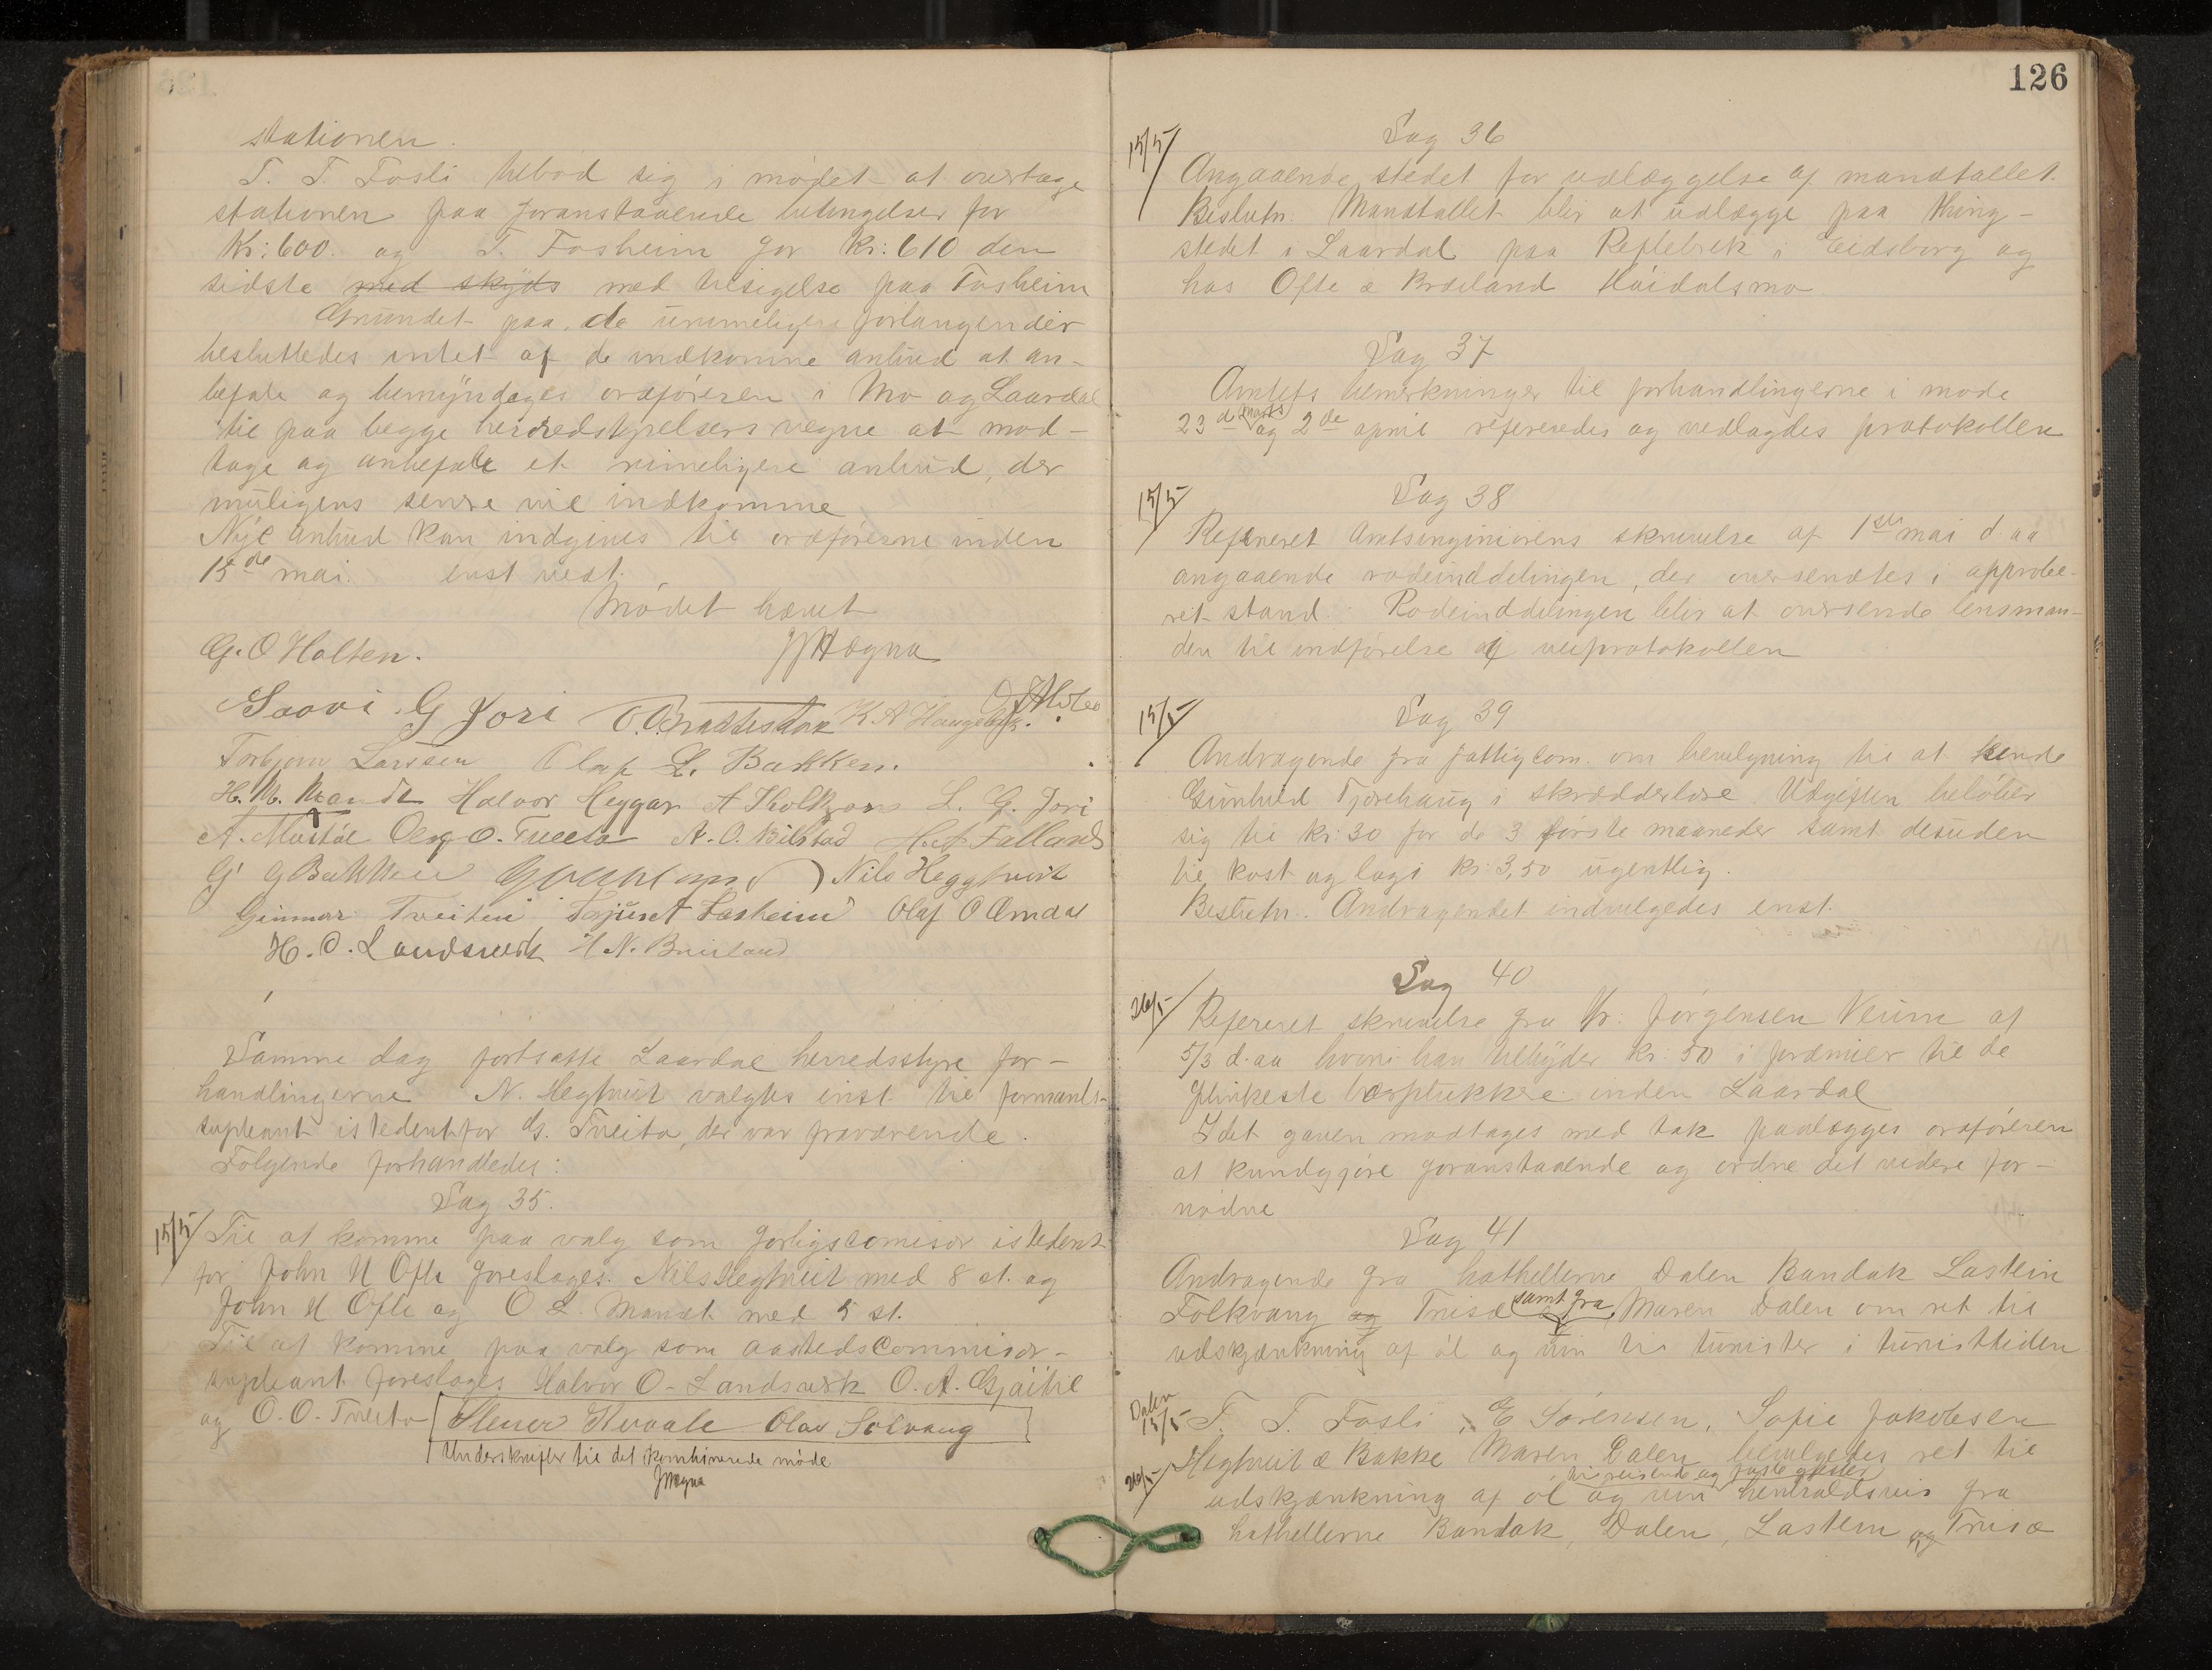 stationen.
T. T. Fosli tilbød sig i mødet at overtage
stationen paa foranstaaende betingelser for
Kr: 600. og T. Fosheim for Kr: 610 den
sidste med skyds med tilsigelse paa Fosheim
Grundet paa de urimeligere forlangender
besluttedes intet af de indkomne anbud at an-
befale og bemyndiges ordføreren i Mo og Laardal
til paa begge herredstyrelsers vegne at mod-
tage og anbefale et rimeligere anbud, der
muligens senere vil indkomme
Nye anbud kan indgives til ordførerne inden
15de mai. enst. vedt.
Mødet hævet
G. O Holten.
Saavi G Jori K A Haugeberg.
Torbjørn Larssen Olaf L. Bakken.
Halvor Heggar L. G. Jori
A. Mostøl O. Tveito A. O. Bilstad H. A. Falland
G G Bakken Nils Hegghvit
Gunnar Tveiten Tarjus T Fosheim Olaf O Omdal
H. O. Landsverk H N. Breiland
Samme dag fortsatte Laardal herredsstyre for-
handlingerne N. Hegtveit valgtes enst. til formands-
supleant istedenfor G. Tveito, der var fraværende.
Følgende forhandledes:
Sag 35.
15/5 Til at komme paa valg som forligscomisær istedent
for John N Ofte foresloges. Nils Hegtveit med 8 st. og
John N Ofte og O L. Mandt med 5 st.
Til at komme paa valg som aastedscommisær-
supleant foresloges Halvor O. Landsverk O. A. Gjøitil
og O. O. Tveito Stener Kvaale Olav Solvang
Underskrifter til det kombinerede møde
126
Sag 36
15/5 Angaaende stedet for udlæggelse af mandtallet.
Beslutn. Mandtallet blir at udlægge paa thing-
stedet i Laardal paa Reflebrek i Eidsborg og
hos Ofte & Breiland Høidalsmo
Sag 37
Amtets bemerkninger til forhandlingerne i møde
23de marts og 2de april refereredes og vedlagdes protokollen
Sag 38
15/5 Refereret Amtsingeniørens skrivelse af 1ste mai d. aa
angaaende rodeinddelingen, der oversendtes i approbe-
ret stand. Rodeinddelingen blir at oversende lensman-
den til indførelse i veiprotokollen
Sag 39
15/5 Andragende fra fattigcom. om bevilgning til at sende
Gunhild Tjørehaug i skrædderlære. Udgiften beløber
sig til kr. 30 for de 3 første maaneder samt desuden
til kost og logi kr. 3,50 ugentlig.
Beslutn. Andragendet indvilgedes enst.
Sag 40
26/5 Refereret skrivelse fra Hr. Jørgensen Veum af
5/3 d. aa hvori han tilbyder kr. 50 i præmier til de
flinkeste bærplukkere inden Laardal
Idet gaven modtages med tak paalægges ordføreren
at kundgjøre foranstaaende og ordne det videre for-
nødne
Sag 41
Andragende fra hothellerne Dalen Bandak Lastein
Folkvang og Trisæ samt fra Maren Dalen om ret til
udskjænkning af øl og vin til turister i turisttiden
Dalen
15/5 T. T. Fosli, E Sørensen, Sofie Jakobsen
Hegtveit & Bakke Maren Dalen bevilgedes ret til
til reisende og faste gjester
26/5 udskjænkning af øl og vin henholdsvis fra
hothellerne Bandak, Dalen, Lastein og Trisæ